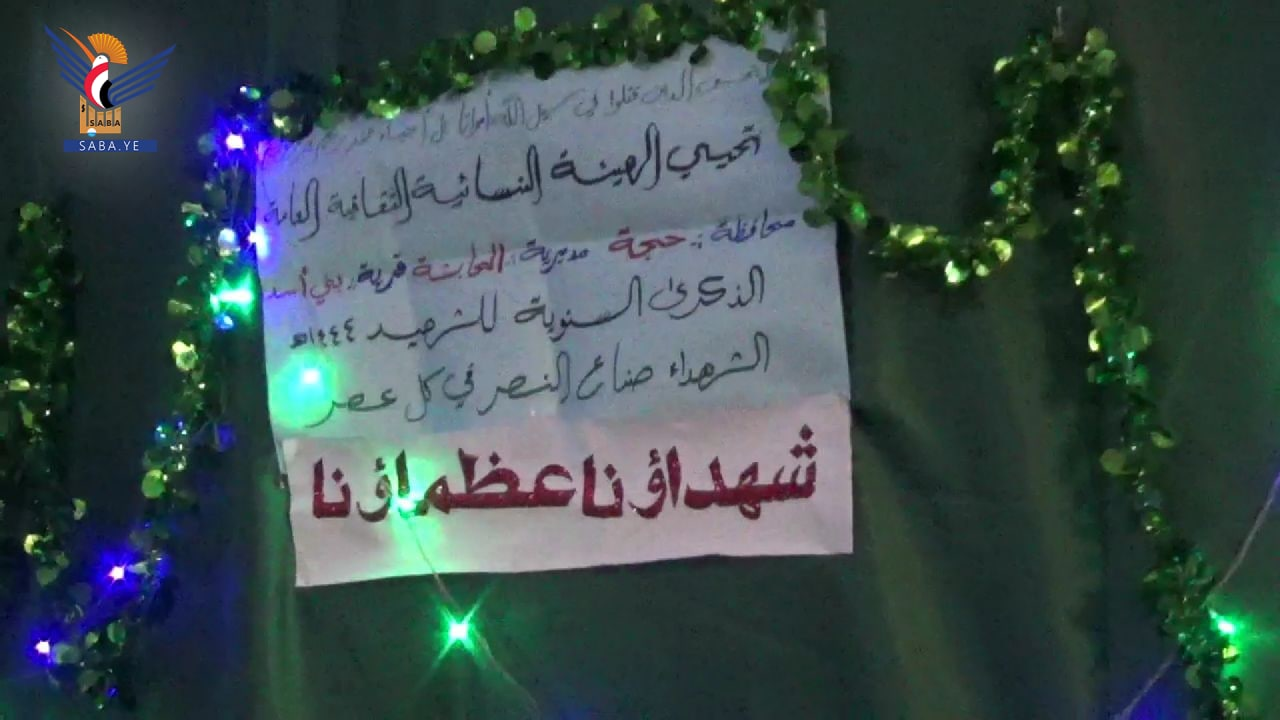 SABA
SABA.YE
الذين قتلوا في سبيل الله أمواتا بل أحياء عند
تحيي الهيئة النسائية الثقافية العامة
محافظة: حجة مديرية: قرية: بني أسد
الذكرى السنوية للشهيد ١٤٤٤هـ
الشهداء صناع النصر في كل عصر
شهداؤنا عظماؤنا